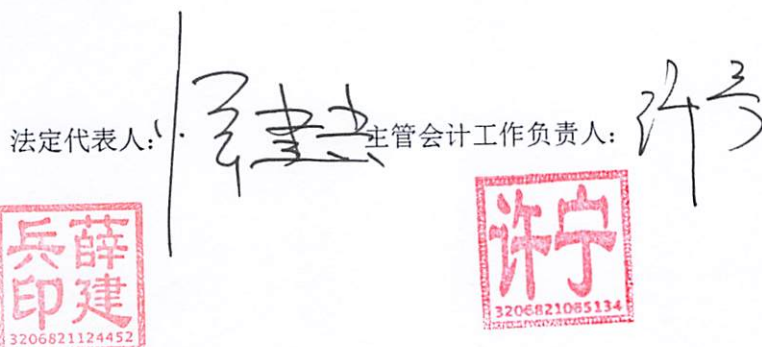 法定代表人: 主管会计工作负责人: 许宁
薛建兵印 许宁
3206821124452 3206821085134